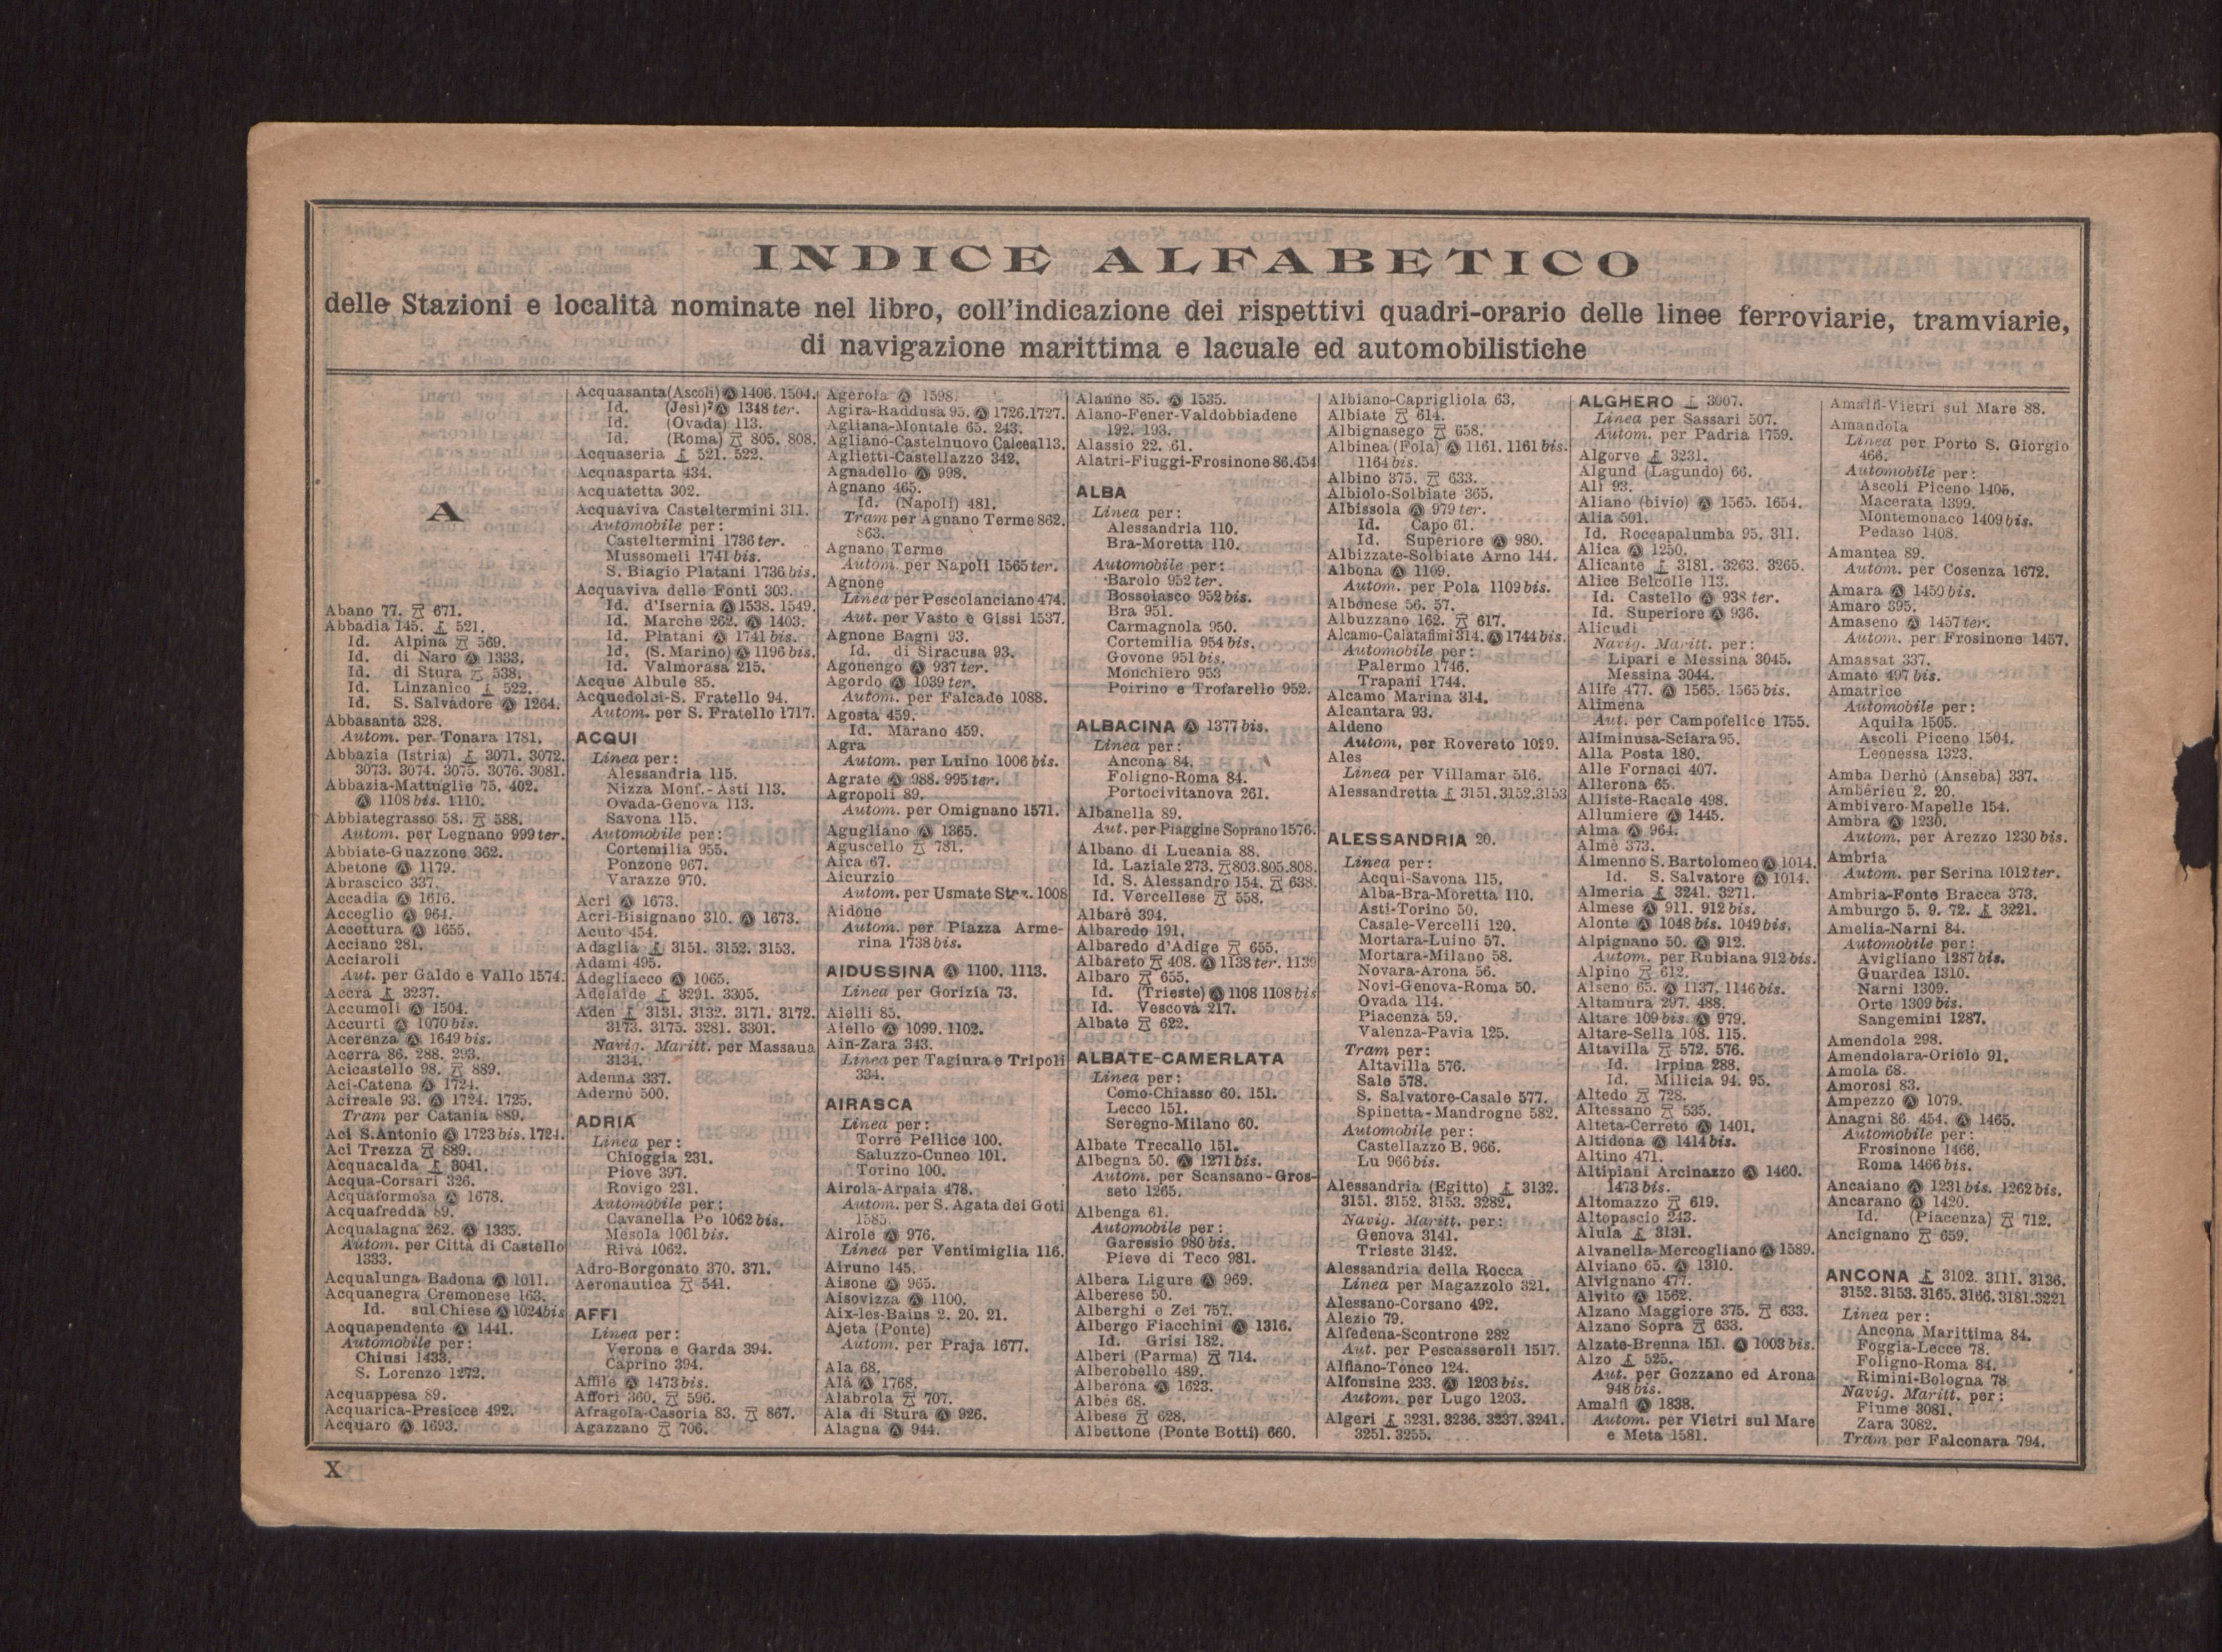 INDICE ALFABETICO
delle Stazioni e località nominate nel libro, coll'indicazione dei rispettivi quadri-orario delle linee ferroviarie, tramviarie,
di navigazione marittima e lacuale ed automobilistiche
A
Abano 77. 671.
Abbadia 145. 521.
Id. Alpina 569.
Id. di Naro Ⓐ 1333.
Id. di Stura 538.
Id. Linzanico 522.
Id. S. Salvadore Ⓐ 1264.
Abbasanta 328.
Autom. per Tonara 1781.
Abbazia (Istria) 3071. 3072.
3073. 3074. 3075. 3076. 3081.
Abbazia-Mattuglie 75. 402.
Ⓐ 1108 bis. 1110.
Abbiategrasso 58. 588.
Autom. per Legnano 999 ter.
Abbiate-Guazzone 362.
Abetone Ⓐ 1179.
Abrascico 337.
Accadia Ⓐ 1616.
Acceglio Ⓐ 964.
Accettura Ⓐ 1655.
Acciano 281.
Acciaroli
Aut. per Galdo e Vallo 1574.
Accra 3237.
Accumoli Ⓐ 1504.
Accurti Ⓐ 1070 bis.
Acerenza Ⓐ 1649 bis.
Acerra 86. 288. 293.
Acicastello 98. 889.
Aci-Catena Ⓐ 1724.
Acireale 93. Ⓐ 1724. 1725.
Tram per Catania 889.
Aci S.Antonio Ⓐ 1723 bis. 1724.
Aci Trezza 889.
Acquacalda 3041.
Acqua-Corsari 326.
Acquaformosa Ⓐ 1678.
Acquafredda 89.
Acqualagna 262. Ⓐ 1335.
Autom. per Città di Castello
1333.
Acqualunga Badona Ⓐ 1011.
Acquanegra Cremonese 163.
Id. sul Chiese Ⓐ 1024 bis
Acquapendente Ⓐ 1441.
Automobile per:
Chiusi 1433.
S. Lorenzo 1272.
Acquappesa 89.
Acquarica-Presicce 492.
Acquaro Ⓐ 1693.
Acquasanta (Ascoli) Ⓐ 1406. 1504.
Id. (Jesi) Ⓐ 1348 ter.
Id. (Ovada) 113.
Id. (Roma) 805. 808.
Acquaseria 521. 522.
Acquasparta 434.
Acquatetta 302.
Acquaviva Casteltermini 311.
Automobile per:
Casteltermini 1736 ter.
Mussomeli 1741 bis.
S. Biagio Platani 1736 bis.
Acquaviva delle Fonti 303.
Id. d'Isernia Ⓐ 1538. 1549.
Id. Marche 262. Ⓐ 1403.
Id. Platani Ⓐ 1741 bis.
Id. (S. Marino) Ⓐ 1196 bis.
Id. Valmorasa 215.
Acque Albule 85.
Acquedolci-S. Fratello 94.
Autom. per S. Fratello 1717.
ACQUI
Linea per:
Alessandria 115.
Nizza Monf.-Asti 113.
Ovada-Genova 113.
Savona 115.
Automobile per:
Cortemilia 955.
Ponzone 967.
Varazze 970.
Acri Ⓐ 1673.
Acri-Bisignano 310. Ⓐ 1673.
Acuto 454.
Adaglia 3151. 3152. 3153.
Adami 495.
Adegliacco Ⓐ 1065.
Adelaide 3291. 3305.
Aden 3131. 3132. 3171. 3172.
3173. 3175. 3281. 3301.
Navig. Maritt. per Massaua
3134.
Adenna 337.
Adernò 500.
ADRIA
Linea per:
Chioggia 231.
Piove 397.
Rovigo 231.
Automobile per:
Cavanella Po 1062 bis.
Mesola 1061 bis.
Riva 1062.
Adro-Borgonato 370. 371.
Aeronautica 541.
AFFI
Linea per:
Verona e Garda 394.
Caprino 394.
Affile Ⓐ 1473 bis.
Affori 360. 596.
Afragola-Casoria 83. 867.
Agazzano 706.
Agerola Ⓐ 1598.
Agira-Raddusa 95. Ⓐ 1726.1727.
Agliana-Montale 65. 243.
Agliano-Castelnuovo Calcea 113.
Aglietti-Castellazzo 342.
Agnadello Ⓐ 998.
Agnano 465.
Id. (Napoli) 481.
Tram per Agnano Terme 862.
863.
Agnano Terme
Autom. per Napoli 1565 ter.
Agnone
Linea per Pescolanciano 474.
Aut. per Vasto e Gissi 1537.
Agnone Bagni 93.
Id. di Siracusa 93.
Agonengo Ⓐ 937 ter.
Agordo Ⓐ 1039 ter.
Autom. per Falcade 1088.
Agosta 459.
Id. Marano 459.
Agra
Autom. per Luino 1006 bis.
Agrate Ⓐ 988. 995 ter.
Agropoli 89.
Autom. per Omignano 1571.
Agugliano Ⓐ 1365.
Aguscello 781.
Aica 67.
Aicurzio
Autom. per Usmate Staz. 1008
Aidone
Autom. per Piazza Arme-
rina 1738 bis.
AIDUSSINA Ⓐ 1100. 1113.
Linea per Gorizia 73.
Aielli 85.
Aiello Ⓐ 1099. 1102.
Ain-Zara 343.
Linea per Tagiura e Tripoli
334.
AIRASCA
Linea per:
Torre Pellice 100.
Saluzzo-Cuneo 101.
Torino 100.
Airola-Arpaia 478.
Autom. per S. Agata dei Goti
1585.
Airole Ⓐ 976.
Linea per Ventimiglia 116.
Airuno 145.
Aisone Ⓐ 965.
Aisovizza Ⓐ 1100.
Aix-les-Bains 2. 20. 21.
Ajeta (Ponte)
Autom. per Praja 1677.
Ala 68.
Alà Ⓐ 1768.
Alabrola 707.
Ala di Stura Ⓐ 926.
Alagna Ⓐ 944.
Alanno 85. Ⓐ 1535.
Alano-Fener-Valdobbiadene
192. 193.
Alassio 22. 61.
Alatri-Fiuggi-Frosinone 86.454
ALBA
Linea per:
Alessandria 110.
Bra-Moretta 110.
Automobile per:
Barolo 952 ter.
Bossolasco 952 bis.
Bra 951.
Carmagnola 950.
Cortemilia 954 bis.
Govone 951 bis.
Monchiero 953
Poirino e Trofarello 952.
ALBACINA Ⓐ 1377 bis.
Linea per:
Ancona 84.
Foligno-Roma 84.
Portocivitanova 261.
Albanella 89.
Aut. per Piaggine Soprano 1576.
Albano di Lucania 88.
Id. Laziale 273. 803.805.808.
Id. S. Alessandro 154. 638.
Id. Vercellese 558.
Albarè 394.
Albaredo 191.
Albaredo d'Adige 655.
Albareto 408. Ⓐ 1138 ter. 1139
Albaro 655.
Id. (Trieste) Ⓐ 1108 1108 bis
Id. Vescovà 217.
Albate 622.
ALBATE-CAMERLATA
Linea per:
Como-Chiasso 60. 151.
Lecco 151.
Seregno-Milano 60.
Albate Trecallo 151.
Albegna 50. Ⓐ 1271 bis.
Autom. per Scansano-Gros-
seto 1265.
Albenga 61.
Automobile per:
Garessio 980 bis.
Pieve di Teco 981.
Albera Ligure Ⓐ 969.
Alberese 50.
Alberghi e Zei 757.
Albergo Fiacchini Ⓐ 1316.
Id. Grisi 182.
Alberi (Parma) 714.
Alberobello 489.
Alberona Ⓐ 1623.
Albes 68.
Albese 628.
Albettone (Ponte Botti) 660.
Albiano-Caprigliola 63.
Albiate 614.
Albignasego 658.
Albinea (Fola) Ⓐ 1161. 1161 bis.
1164 bis.
Albino 375. 633.
Albiolo-Solbiate 365.
Albissola Ⓐ 979 ter.
Id. Capo 61.
Id. Superiore Ⓐ 980.
Albizzate-Solbiate Arno 144.
Albona Ⓐ 1109.
Autom. per Pola 1109 bis.
Albonese 56. 57.
Albuzzano 162. 617.
Alcamo-Calatafimi 314. Ⓐ 1744 bis.
Automobile per:
Palermo 1746.
Trapani 1744.
Alcamo Marina 314.
Alcantara 93.
Aldeno
Autom. per Rovereto 1029.
Ales
Linea per Villamar 516.
Alessandretta 3151.3152.3153
ALESSANDRIA 20.
Linea per:
Acqui-Savona 115.
Alba-Bra-Moretta 110.
Asti-Torino 50.
Casale-Vercelli 120.
Mortara-Luino 57.
Mortara-Milano 58.
Novara-Arona 56.
Novi-Genova-Roma 50.
Ovada 114.
Piacenza 59.
Valenza-Pavia 125.
Tram per:
Altavilla 576.
Sale 578.
S. Salvatore-Casale 577.
Spinetta-Mandrogne 582.
Automobile per:
Castellazzo B. 966.
Lu 966 bis.
Alessandria (Egitto) 3132.
3151. 3152. 3153. 3282.
Navig. Maritt. per:
Genova 3141.
Trieste 3142.
Alessandria della Rocca
Linea per Magazzolo 321.
Alessano-Corsano 492.
Alezio 79.
Alfedena-Scontrone 282
Aut. per Pescasseroli 1517.
Alfiano-Tonco 124.
Alfonsine 233. Ⓐ 1203 bis.
Autom. per Lugo 1203.
Algeri 3231. 3236. 3237. 3241.
3251. 3255.
ALGHERO 3007.
Linea per Sassari 507.
Autom. per Padria 1759.
Algorve 3231.
Algund (Lagundo) 66.
Alì 93.
Aliano (bivio) Ⓐ 1565. 1654.
Alia 501.
Id. Roccapalumba 95. 311.
Alica Ⓐ 1250.
Alicante 3181. 3263. 3265.
Alice Belcolle 113.
Id. Castello Ⓐ 938 ter.
Id. Superiore Ⓐ 936.
Alicudi
Navig. Maritt. per:
Lipari e Messina 3045.
Messina 3044.
Alife 477. Ⓐ 1565. 1565 bis.
Alimena
Aut. per Campofelice 1755.
Aliminusa-Sciara 95.
Alla Posta 180.
Alle Fornaci 407.
Allerona 65.
Alliste-Racale 498.
Allumiere Ⓐ 1445.
Alma Ⓐ 964.
Almè 373.
Almenno S. Bartolomeo Ⓐ 1014.
Id. S. Salvatore Ⓐ 1014.
Almeria 3241. 3271.
Almese Ⓐ 911. 912 bis.
Alonte Ⓐ 1048 bis. 1049 bis.
Alpignano 50. Ⓐ 912.
Autom. per Rubiana 912 bis.
Alpino 612.
Alseno 65. Ⓐ 1137. 1146 bis.
Altamura 297. 488.
Altare 109 bis. Ⓐ 979.
Altare-Sella 108. 115.
Altavilla 572. 576.
Id. Irpina 288.
Id. Milicia 94. 95.
Altedo 728.
Altessano 535.
Alteta-Cerreto Ⓐ 1401.
Altidona Ⓐ 1414 bis.
Altino 471.
Altipiani Arcinazzo Ⓐ 1460.
1473 bis.
Altomazzo 619.
Altopascio 243.
Alula 3131.
Alvanella-Mercogliano Ⓐ 1589.
Alviano 65. Ⓐ 1310.
Alvignano 477.
Alvito Ⓐ 1562.
Alzano Maggiore 375. 633.
Alzano Sopra 633.
Alzate-Brenna 151. Ⓐ 1003 bis.
Alzo 525.
Aut. per Gozzano ed Arona
948 bis.
Amalfi Ⓐ 1838.
Autom. per Vietri sul Mare
e Meta 1581.
Amalfi-Vietri sul Mare 88.
Amandola
Linea per Porto S. Giorgio
466.
Automobile per:
Ascoli Piceno 1405.
Macerata 1399.
Montemonaco 1409 bis.
Pedaso 1408.
Amantea 89.
Autom. per Cosenza 1672.
Amara Ⓐ 1450 bis.
Amaro 395.
Amaseno Ⓐ 1457 ter.
Autom. per Frosinone 1457.
Amassat 337.
Amato 497 bis.
Amatrice
Automobile per:
Aquila 1505.
Ascoli Piceno 1504.
Leonessa 1323.
Amba Derhò (Anseba) 337.
Ambérieu 2. 20.
Ambivero-Mapelle 154.
Ambra Ⓐ 1230.
Autom. per Arezzo 1230 bis.
Ambria
Autom. per Serina 1012 ter.
Ambria-Fonte Bracca 373.
Amburgo 5. 9. 72. 3221.
Amelia-Narni 84.
Automobile per:
Avigliano 1287 bis.
Guardea 1310.
Narni 1309.
Orte 1309 bis.
Sangemini 1287.
Amendola 298.
Amendolara-Oriolo 91.
Amola 68.
Amorosi 83.
Ampezzo Ⓐ 1079.
Anagni 86. 454. Ⓐ 1465.
Automobile per:
Frosinone 1466.
Roma 1466 bis.
Ancaiano Ⓐ 1231 bis. 1262 bis.
Ancarano Ⓐ 1420.
Id. (Piacenza) 712.
Ancignano 659.
ANCONA 3102. 3111. 3136.
3152. 3153. 3165. 3166. 3181. 3221
Linea per:
Ancona Marittima 84.
Foggia-Lecce 78.
Foligno-Roma 84.
Rimini-Bologna 78
Navig. Maritt. per:
Fiume 3081.
Zara 3082.
Tram per Falconara 794.
X